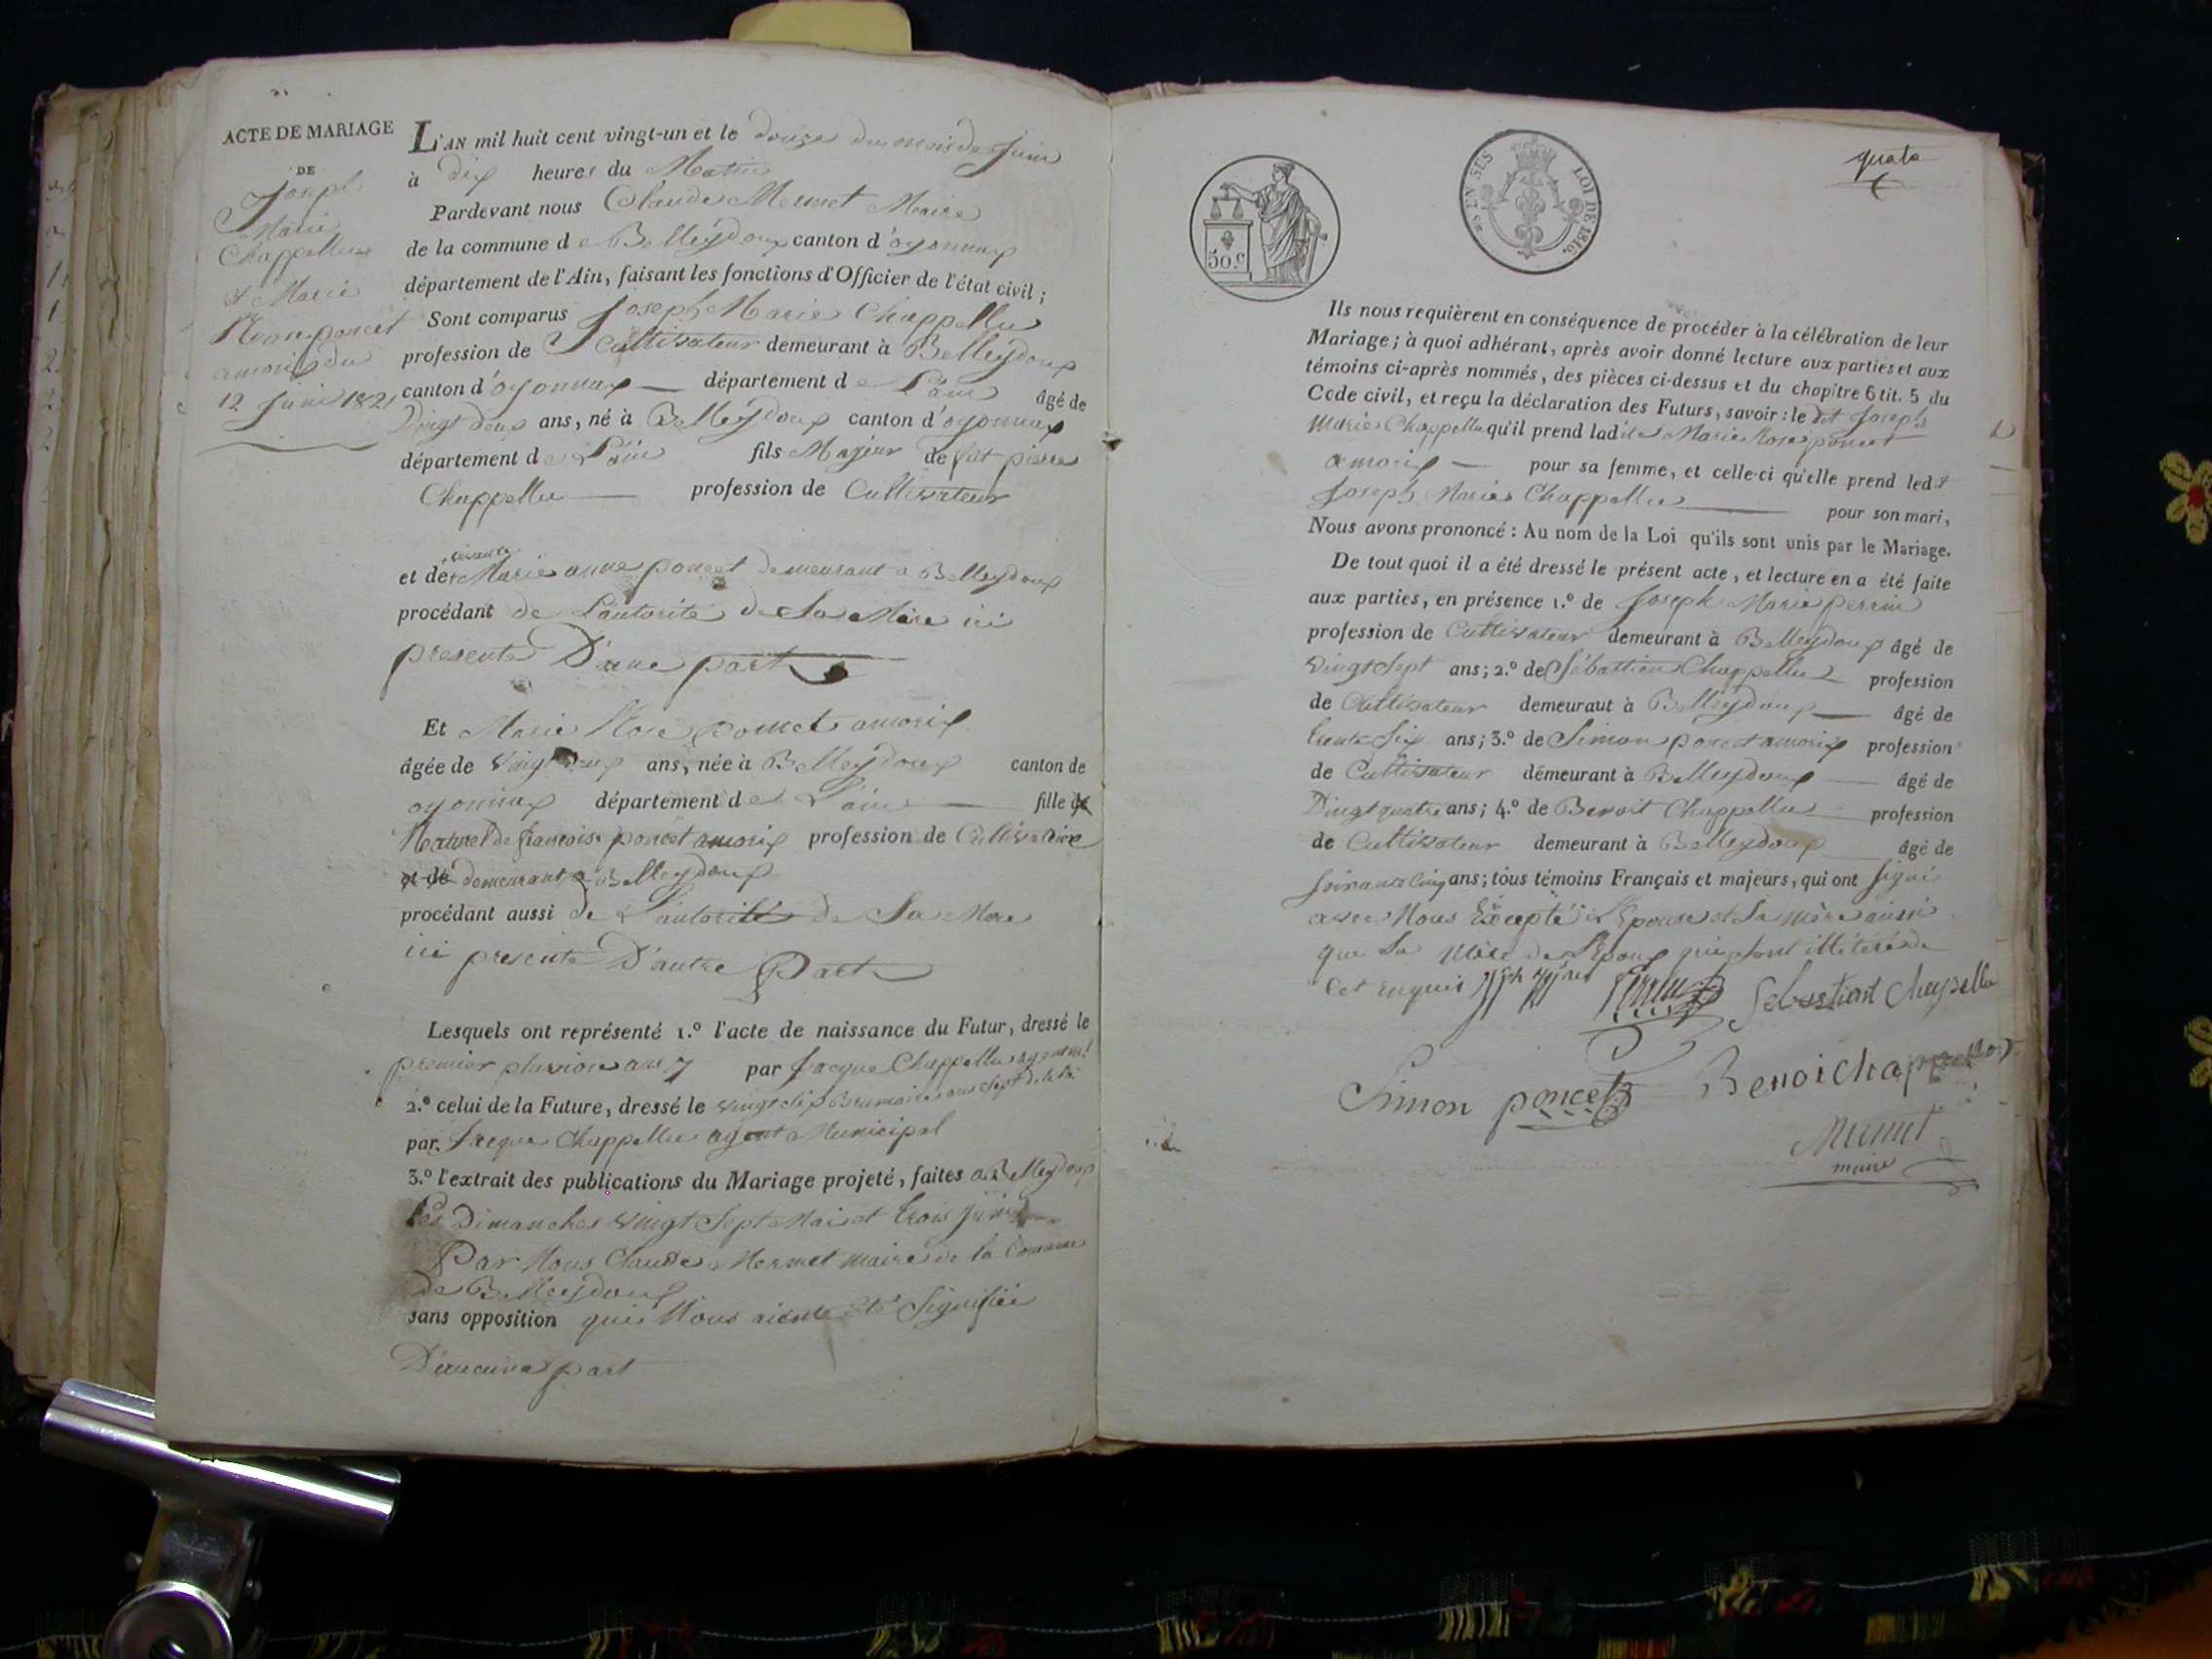 ACTE DE MARIAGE
DE
Joseph
Marie
Chappellu
et Marie
Rose poncet
amorix du
12 Juin 1821
L'AN mil huit cent vingt-un et le douze du mois de Juin
à dix heures du Matin
Pardevant nous Claude Mermet Maire
de la commune de Belleydoux canton d'oyonnax
département de l'Ain, faisant les fonctions d'Officier de l'état civil ;
Sont comparus Joseph Marie Chappellu
profession de Cultivateur demeurant à Belleydoux
canton d'oyonnax département de L'ain âgé de
Vingt deux ans, né à Belleydoux canton d'oyonnax
département de L'ain fils Majeur de fut pierre
Chappellu profession de Cultivateur
et de Marie anne poncet demeurant a Belleydoux
procédant de L'autorité de Sa Mère ici
presente D'une part
Et Marie Rose poncet amorix
âgée de Vingt deux ans, née à Belleydoux canton de
oyonnax département de L'ain fille de
Naturel de francoise poncet amorix profession de Cultivatrice
et de demeurant a Belleydoux
procédant aussi de L'autorité de Sa Mere
ici presente D'autre Part
Lesquels ont représenté 1.º l'acte de naissance du Futur, dressé le
premier pluviose an 7 par Jacque Chappellu agent m.l
2.º celui de la Future, dressé le vingt six Brumaire ans Sept
par Jacque Chappellu agent Municipal
3.º l'extrait des publications du Mariage projeté, faites a Belleydoux
Les Dimanches vingt Sept Mai et trois Juin
Par Nous Claude Mermet maire de la Commune
de Belleydoux
sans opposition qui Nous aiente été Signifiée
D'aucune part
50.C
EN SUS
LOI DE 1816.
Ils nous requièrent en conséquence de procéder à la célébration de leur
Mariage ; à quoi adhérant, après avoir donné lecture aux parties et aux
témoins ci-après nommés, des pièces ci-dessus et du chapitre 6 tit. 5 du
Code civil, et reçu la déclaration des Futurs, savoir : le dit Joseph
Marie Chappellu qu'il prend ladite Marie Rose poncet
amorix pour sa femme, et celle-ci qu'elle prend ledt
Joseph Marie Chappellu pour son mari,
Nous avons prononcé : Au nom de la Loi qu'ils sont unis par le Mariage.
De tout quoi il a été dressé le présent acte, et lecture en a été faite
aux parties, en présence 1.º de Joseph Marie perrin
profession de Cultivateur demeurant à Belleydoux âgé de
vingt Sept ans ; 2.º de Sébastien Chappellu profession
de Cultivateur demeuraut à Belleydoux âgé de
trente Six ans ; 3.º de Simon poncet amorix profession
de Cultivateur démeurant à Belleydoux âgé de
Vingt quatre ans ; 4.º de Benoit Chappellu profession
de Cultivateur demeurant à Belleydoux âgé de
Soixante Cinq ans ; tous témoins Français et majeurs, qui ont Signé
avec Nous Excepté L'Epouse et Sa mère ainsi
que La Mère de L'Epoux qui sont illitéré de
Cet enquis
Sebastient Chapellu
Simon poncet
Benoi chappellu
Mermet
maire